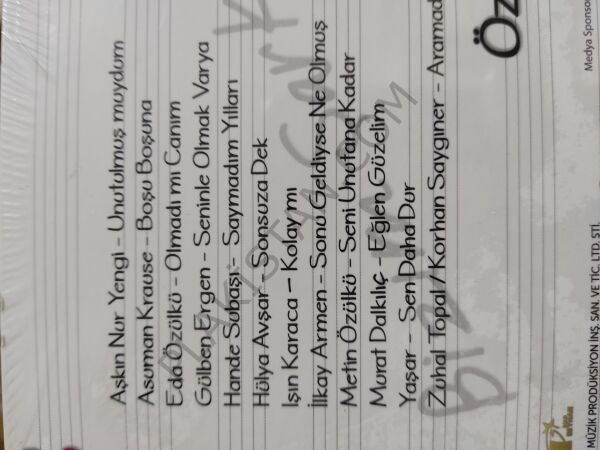 Aşkın Nur Yengi - Unutulmuş muydum
Asuman Krause - Boşu Boşuna
Eda Özülkü - Olmadı mı Canım
Gülben Ergen - Seninle Olmak Varya
Hande Subaşı - Saymadım Yılları
Hülya Avşar - Sonsuza Dek
Işın Karaca - Kolay mı
İlkay Armen - Sonu Geldiyse Ne Olmuş
Metin Özülkü - Seni Unutana Kadar
Murat Dalkılıç - Eğlen Güzelim
Yaşar - Sen Daha Dur
Zuhal Topal / Korhan Saygıner - Aramad
Öz
Medya Sponso
MÜZİK PRODÜKSİYON İNŞ. SAN. VE TİC. LTD. ŞTİ.
PLAKISTAN.COM